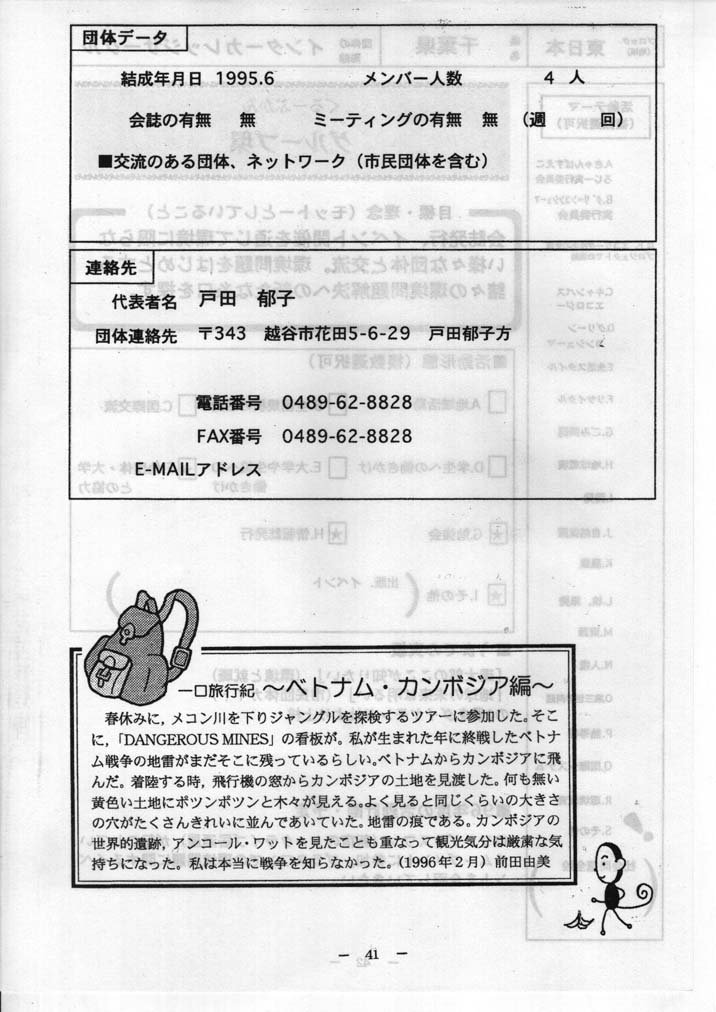 団体データ
結成年月日 1995.6 メンバー人数 4 人
会誌の有無 無 ミーティングの有無 無 (週 回)
■交流のある団体、ネットワーク(市民団体を含む)
連絡先
代表者名 戸田 郁子
団体連絡先 〒343 越谷市花田5-6-29 戸田郁子方
電話番号 0489-62-8828
FAX番号 0489-62-8828
E-MAILアドレス
一口旅行紀 〜ベトナム・カンボジア編〜
春休みに,メコン川を下りジャングルを探検するツアーに参加した。そこ
に,「DANGEROUS MINES」の看板が。私が生まれた年に終戦したベトナ
ム戦争の地雷がまだそこに残っているらしい。ベトナムからカンボジアに飛
んだ。着陸する時,飛行機の窓からカンボジアの土地を見渡した。何も無い
黄色い土地にポツンポツンと木々が見える。よく見ると同じくらいの大きさ
の穴がたくさんきれいに並んであいていた。地雷の痕である。カンボジアの
世界的遺跡,アンコール・ワットを見たことも重なって観光気分は厳粛な気
持ちになった。私は本当に戦争を知らなかった。(1996年2月) 前田由美
- 41 -